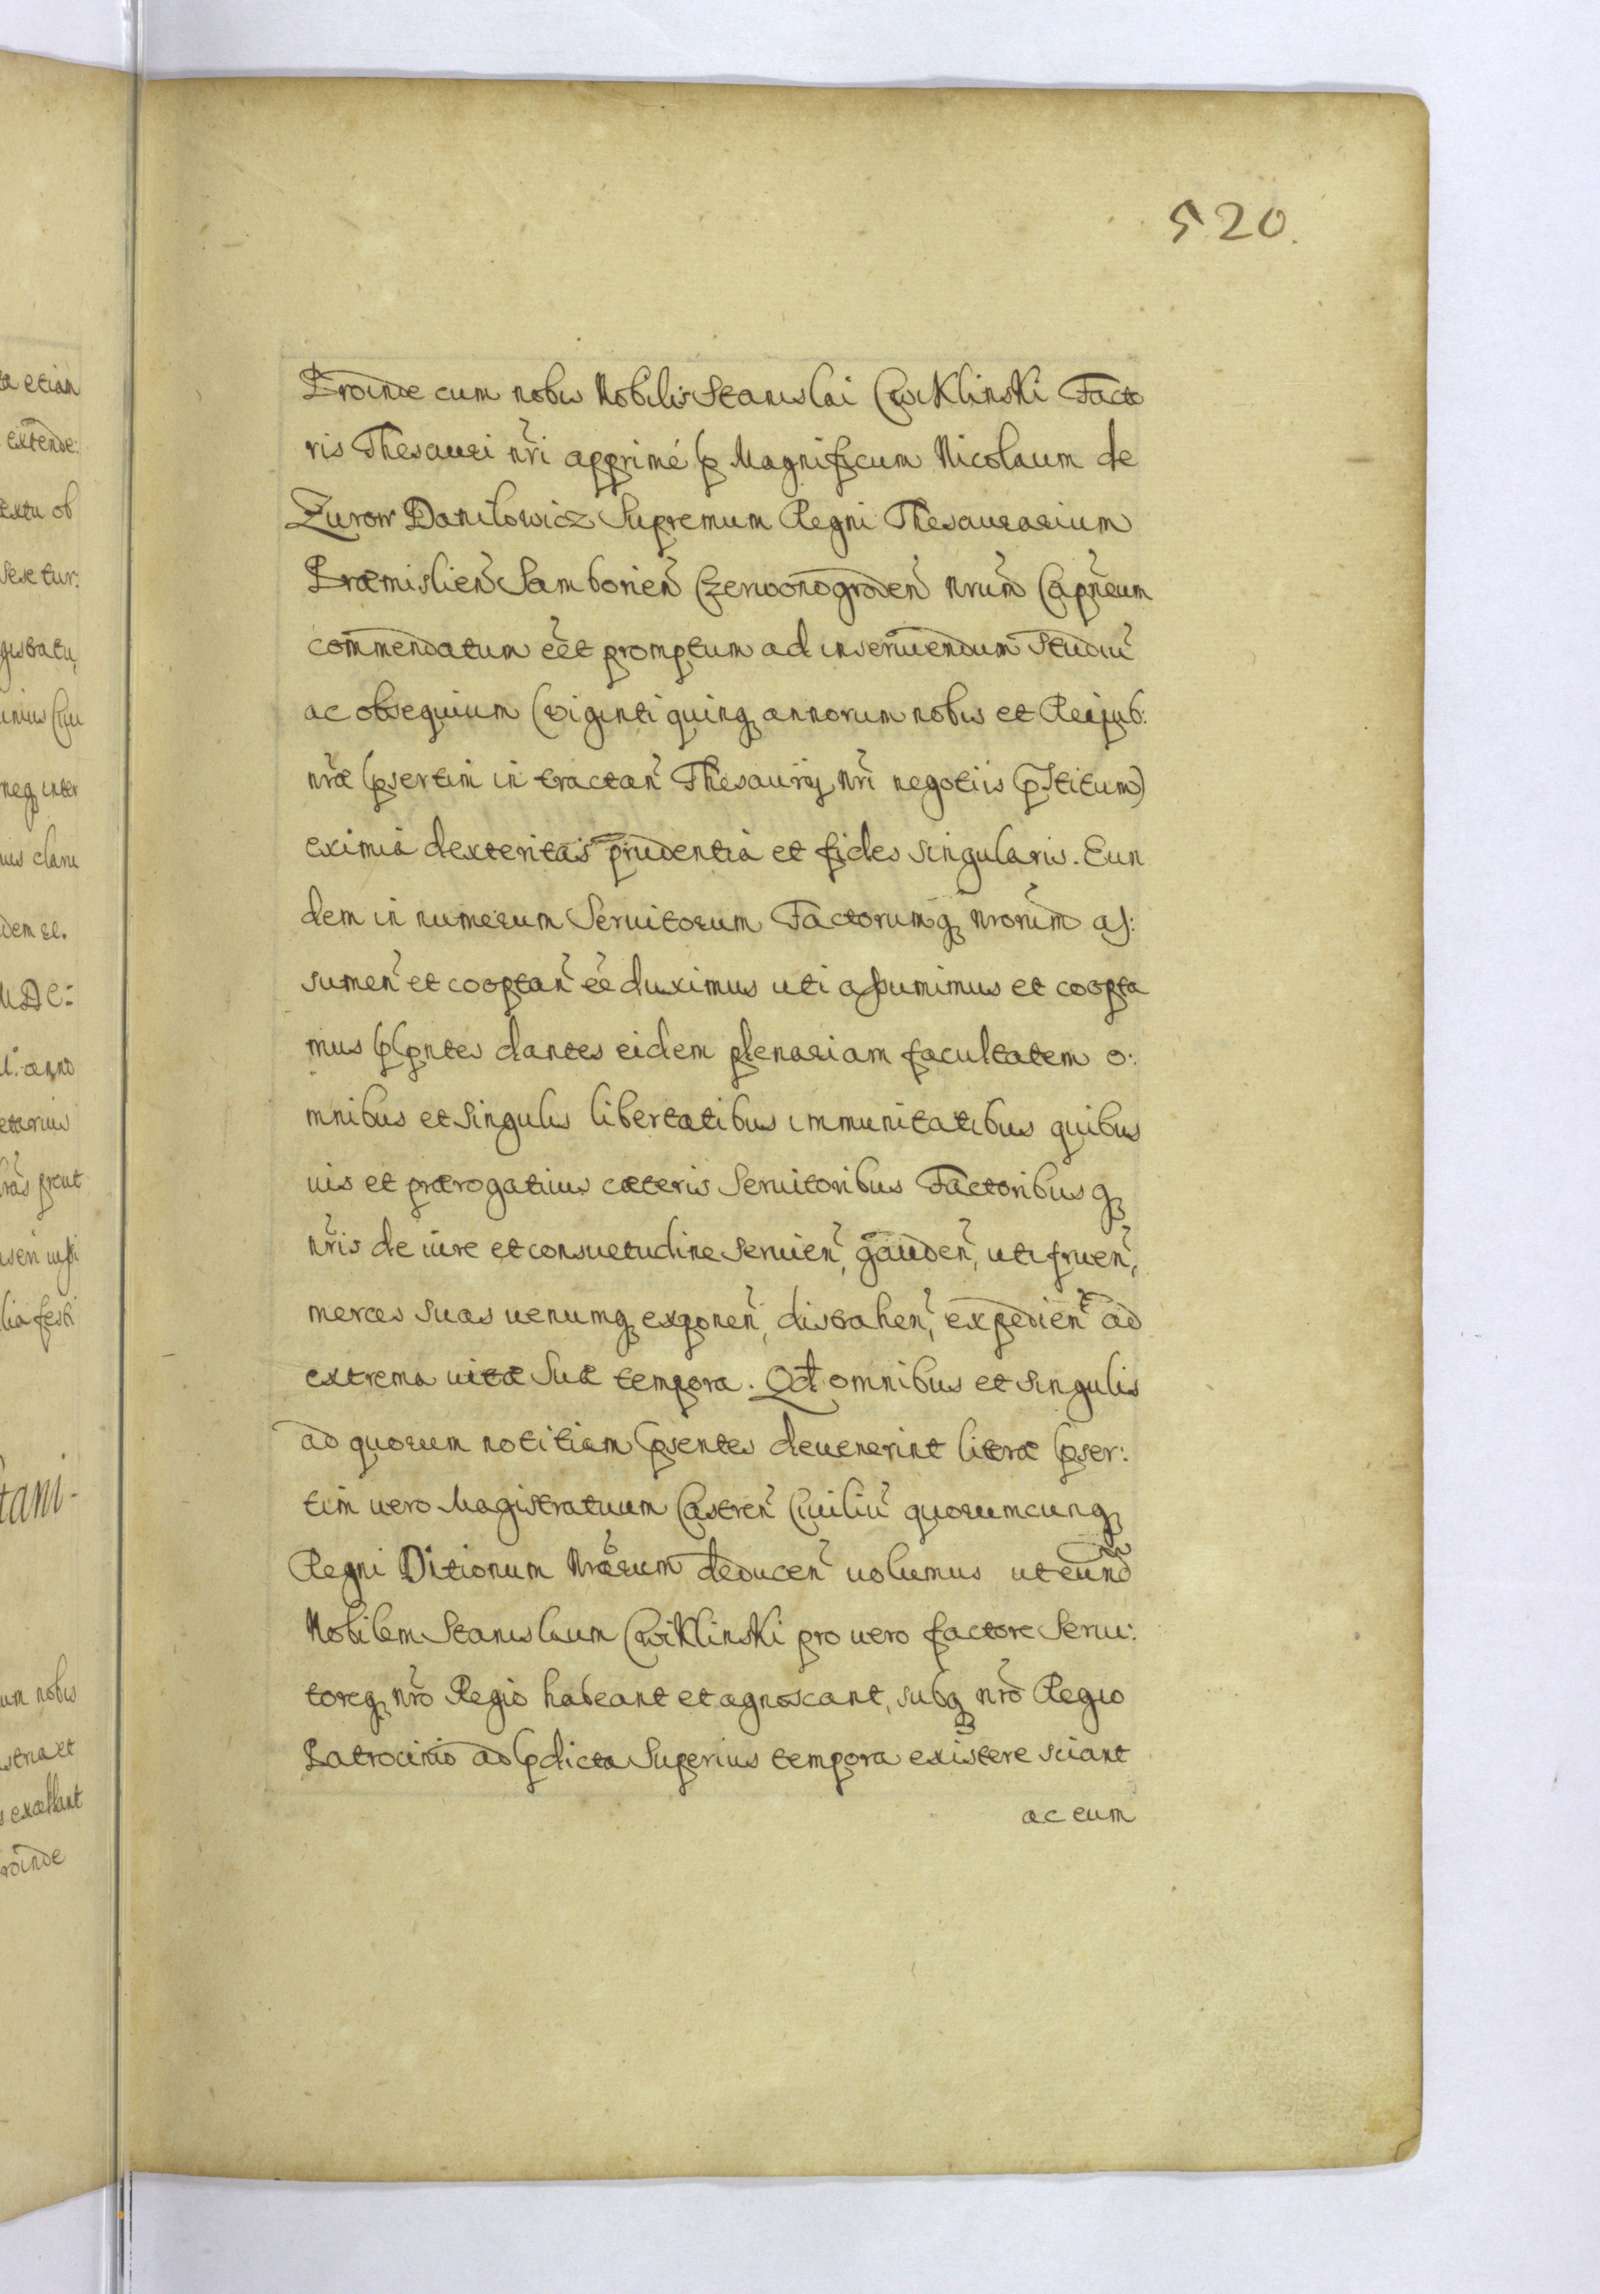 520.
Proinde cum nobis Nobilis Stanislai Cwiklinski Facto
ris Thesauri nr̃i apprimé p Magnificum Nicolaum de
Zurow Danilowicz Supremum Regni Thesaurarium
Præmislien̉ Samborien̉ Czerwonogroden̉ nrum̉ Capn̉eum
commendatum eẻt promptum ad inseruiendum studiủ
ac obsequium (viginti quinq annorum nobis et Reipub:
nr̃æ psertim in tractan̉ Thesaurij nr̃i negotiis pstitum)
eximia dexteritas prudentia et fides singularis. Eun
dem in numerum Seruitorum Factorumq nrorum̉ as:
sumen̉ et cooptan̉ eẻ duximus uti assumimus et coopta
mus p pntes dantes eidem plenariam facultatem o:
mnibus et singulis libertatibus immunitatibus quibus
uis et prærogatiuis cæteris Seruitoribus Factoribusq
nr̃is de iure et consuetudine seruien̉, gauden̉, uti fruen̉,
merces suas uenumq exponen̉, distrahen̉, expedien̉ ad
extrema uitæ suæ tempora. Qd omnibus et singulis
ad quorum notitiam psentes deuenerint literæ pser:
tim uero Magistratuum Castren̉ Ciuiliủ quorumcunq
Regni Ditionum Nrarum deducen̉ uolumus ut eund
Nobilem Stanislaum Cwiklinski pro uero factore Serui:
toreq nr̃o Regio habeant et agnoscant, subq nr̃o Regio
Patrocinio ad pdicta superius tempora existere sciant
ac eum